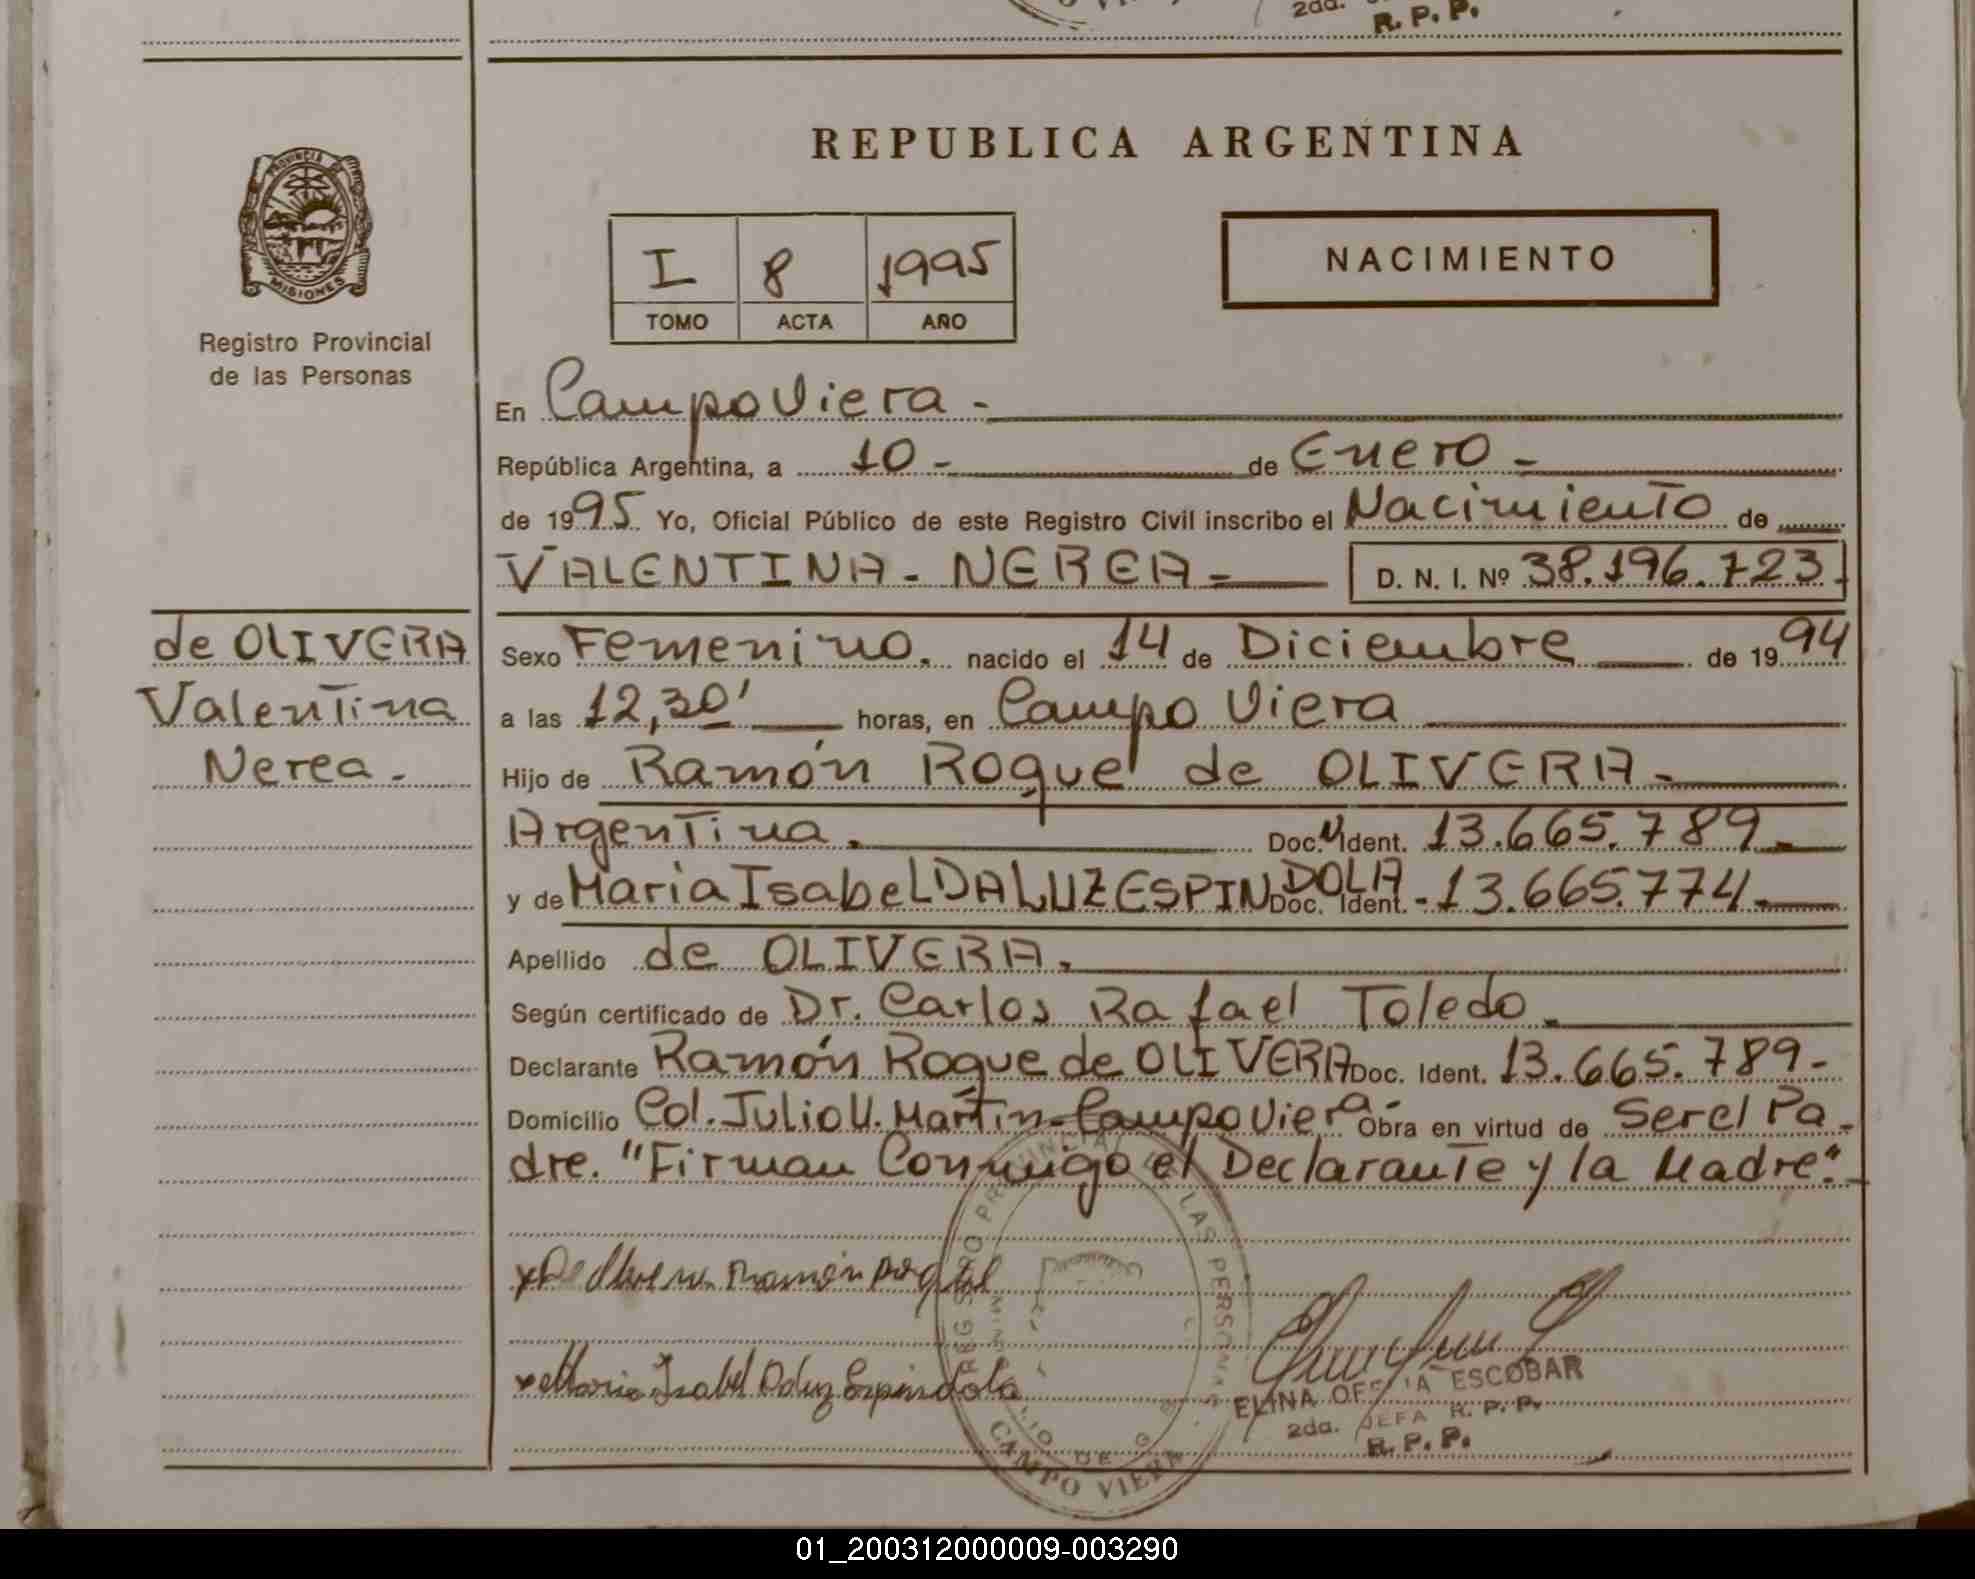 2da.
R. P. P.
REPUBLICA ARGENTINA
PROVINCIA DE
MISIONES
Registro Provincial
de las Personas
I 8 1995
TOMO ACTA AÑO
NACIMIENTO
En Campo Viera -
República Argentina, a 10 - de Enero -
de 1995 Yo, Oficial Público de este Registro Civil inscribo el Nacimiento de
VALENTINA - NEREA - D. N. I. Nº 38.196.723.
de OLIVERA
Valentina
Nerea -
Sexo Femenino. nacido el 14 de Diciembre de 1994
a las 12,30' horas, en Campo Viera
Hijo de Ramón Roque de OLIVERA -
Argentina. Doc. Ident. 13.665.789 -
y de Maria Isabel DA LUZ ESPINDOLA Doc. Ident. - 13.665.774 -
Apellido de OLIVERA.
Según certificado de Dr. Carlos Rafael Toledo.
Declarante Ramón Roque de OLIVERA Doc. Ident. 13.665.789 -
Domicilio Col. Julio U. Martin - Campo Viera - Obra en virtud de Ser el Pa-
dre. "Firman Conmigo el Declarante y la Madre". -
x De Olivera Ramón Roque
x Maria Isabel Da luz Espindola
REGISTRO PROVINCIAL DE LAS PERSONAS
CAMPO VIERA
ELINA OFELIA ESCOBAR
2da. JEFA R. P. P.
R. P. P.
01_200312000009-003290